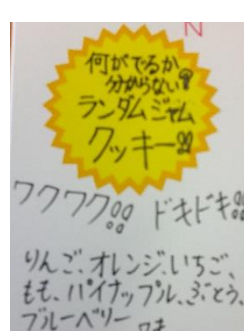 N
何がでるか
分からない!!
ランダムジャム
クッキー!!
ワクワク!! ドキドキ!!
りんご、オレンジ、いちご、
もも、パイナップル、ぶどう、
ブルーベリー